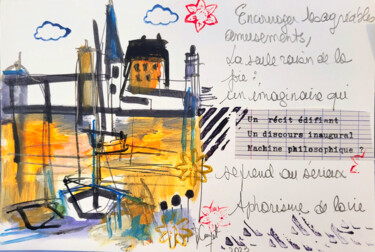 Encourager les agréables
amusements,
La seule raison de la
vie :
Un imaginaire qui
Un récit édifiant
Un discours inaugural
Machine philosophique ?
se prend au sérieux
Aphorisme de la vie